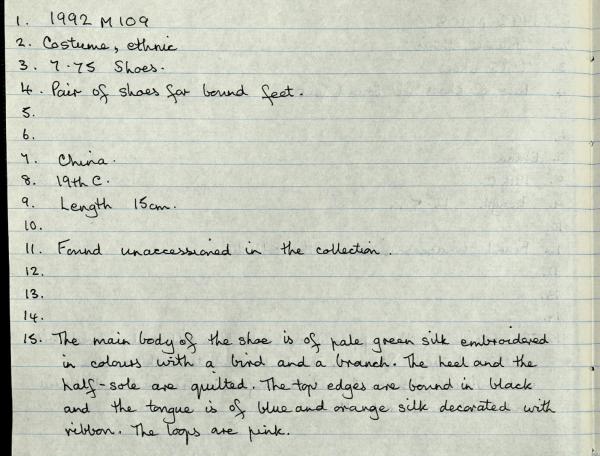 1. 1992 M 109
2. Costume, ethnic
3. 7.75 Shoes.
4. Pair of shoes for bound feet.
5.
6.
7. China.
8. 19th C.
9. Length 15cm.
10.
11. Found unaccessioned in the collection.
12.
13.
14.
15. The main body of the shoe is of pale green silk embroidered
in colours with a bird and a branch. The heel and the
half-sole are quilted. The top edges are bound in black
and the tongue is of blue and orange silk decorated with
ribbon. The loops are pink.